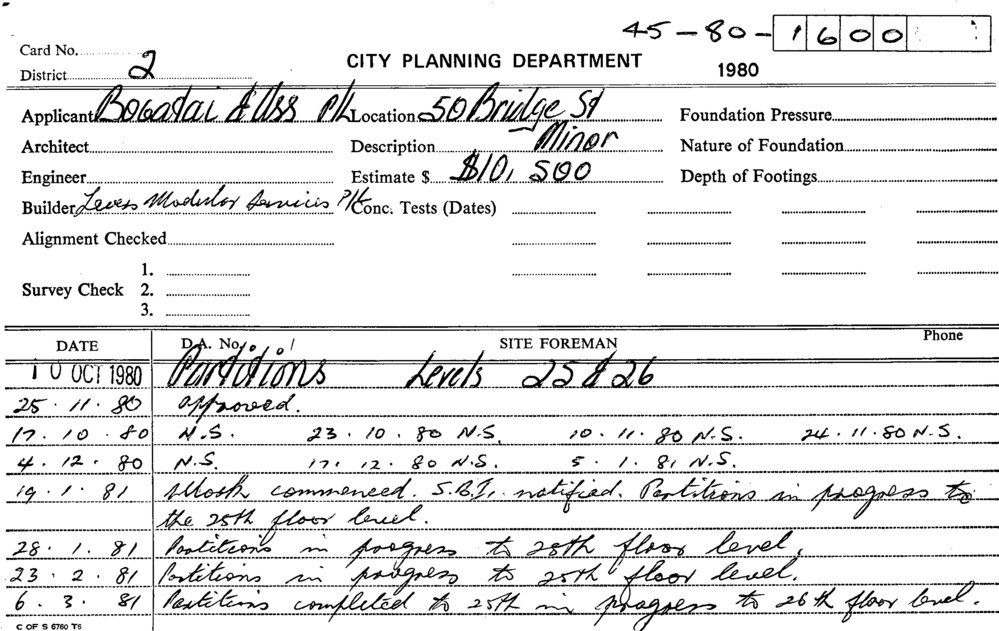 45-80-1600
Card No.
District 2
CITY PLANNING DEPARTMENT
1980
Applicant & Ass P/L Location 50 Bridge St Foundation Pressure
Architect Description Minor Nature of Foundation
Engineer Estimate $ $10,500 Depth of Footings
Builder Levers Modular Services P/L Conc. Tests (Dates)
Alignment Checked
1.
Survey Check 2.
3.
DATE D.A. No. SITE FOREMAN Phone
10 OCT 1980 Partitions Levels 25 & 26
25.11.80 approved.
17.10.80 N.S. 23.10.80 N.S. 10.11.80 N.S. 24.11.80 N.S.
4.12.80 N.S. 17.12.80 N.S. 5.1.81 N.S.
19.1.81 Work commenced. S.B.I. notified. Partitions in progress to
the 25th floor level.
28.1.81 Partitions in progress to 25th floor level.
23.2.81 Partitions in progress to 25th floor level.
6.3.81 Partitions completed to 25th in progress to 26th floor level.
C OF S 6760 T6